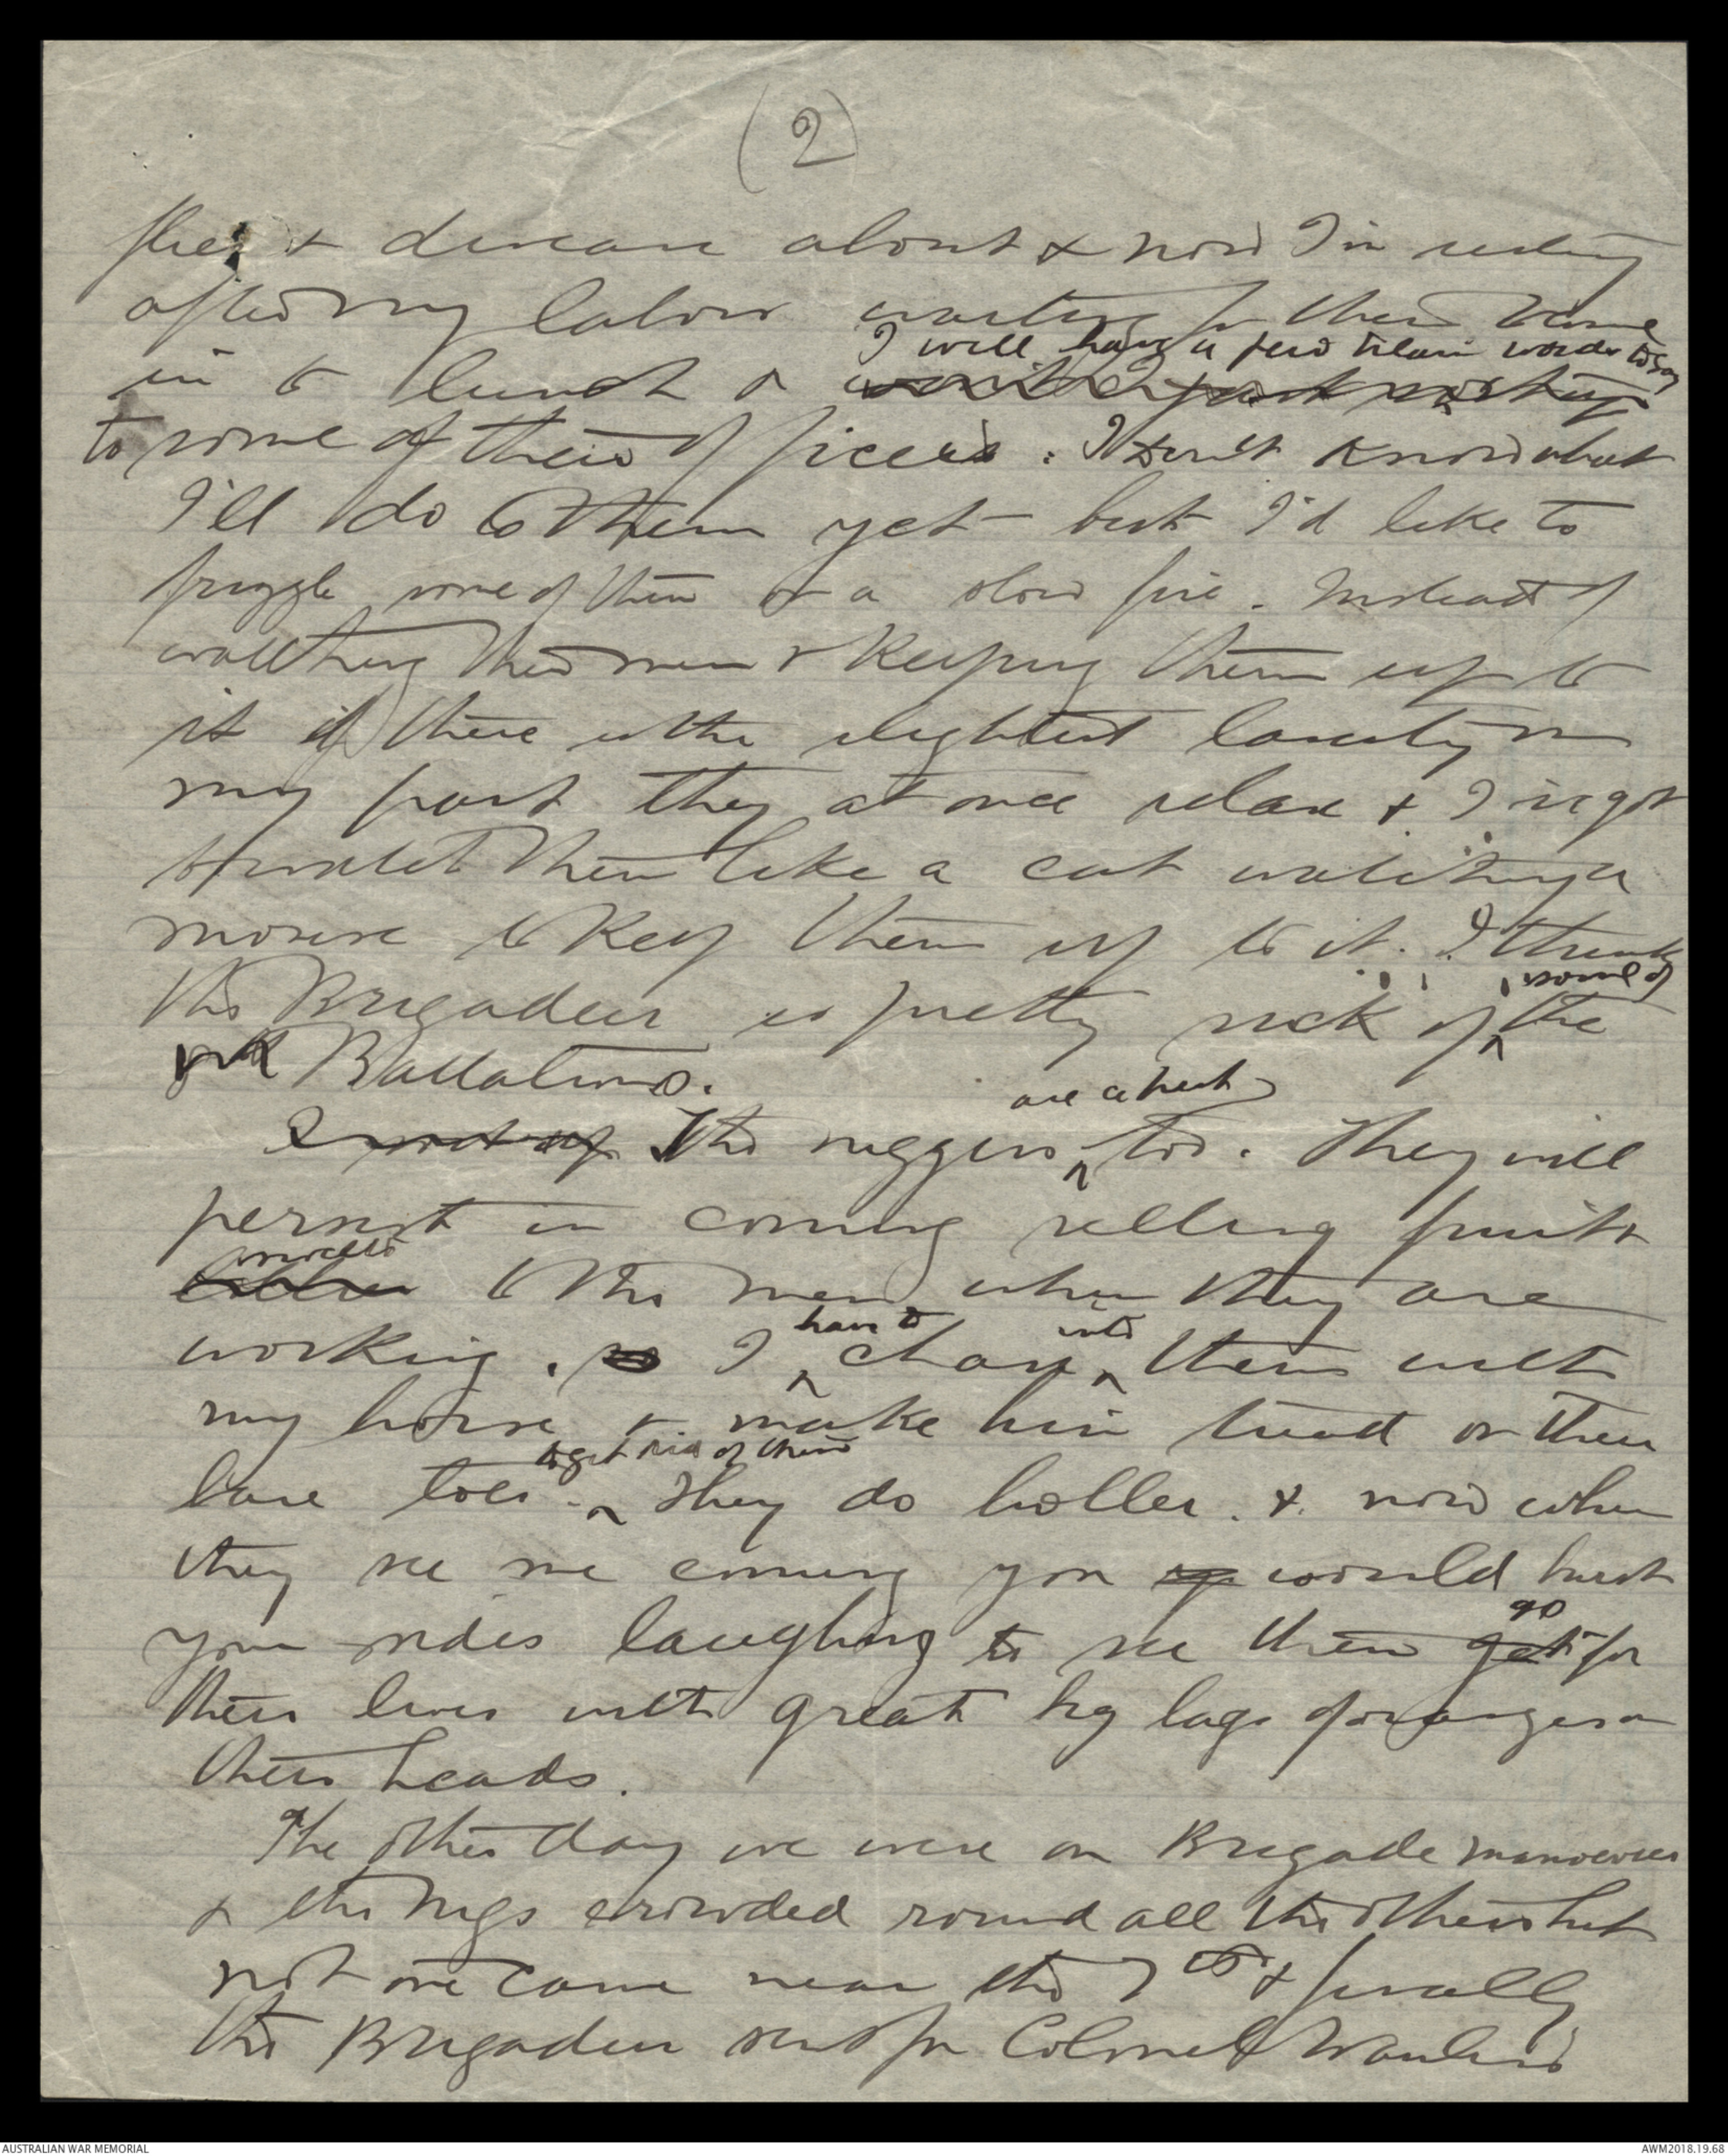 (2)
flies & disease about & now I'm resting
after my labour waiting for them to come
I will have a few plain words to say
in to lunch &
to some of their officers. I don't know what
I'll do to them yet - but I'd like to
frizzle some of them on a slow fire. Instead of
watching their men & keeping them up to
it if there is the slightest laxity on
my part they at once relax & I've got
to watch them like a cat watching a
mouse to keep them up to it. I think
some of
the Brigadier is pretty sick of the
Battalions.
are a pest
The niggers too. They will
persist in coming selling fruit &
to the men when they are
have to into
working. so I charge them with
my horse & make him tread on their
to get rid of them
bare toes. They do holler. & now when
they see me coming you would burst
go
your sides laughing to see them get for
their lives with great big bags of oranges on
their heads.
The other day we were on Brigade manoeuvres
& the nigs crowded round all the others but
not one came near the 7th & finally
the Brigadier sent for Colonel Wanliss
AUSTRALIAN WAR MEMORIAL
AWM2018.19.68